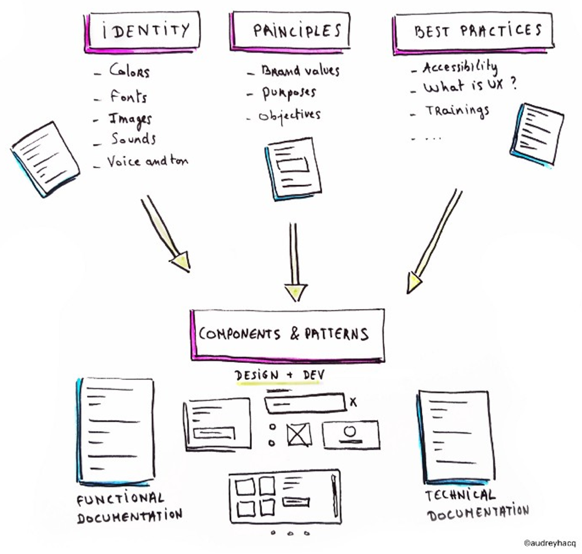 iDENTITY
- Colors
- Fonts
- Images
- Sounds
- Voice and ton
PRINCIPLES
- Brand values
- Purposes
- Objectives
BEST PRACTICES
- Accessibility
- What is UX ?
- TRainings
- ...
COMPONENTS & PATTERNS
DESIGN + DEV
FUNCTIONAL
DOCUMENTATION
TECHNICAL
DOCUMENTATION
©audreyhacq